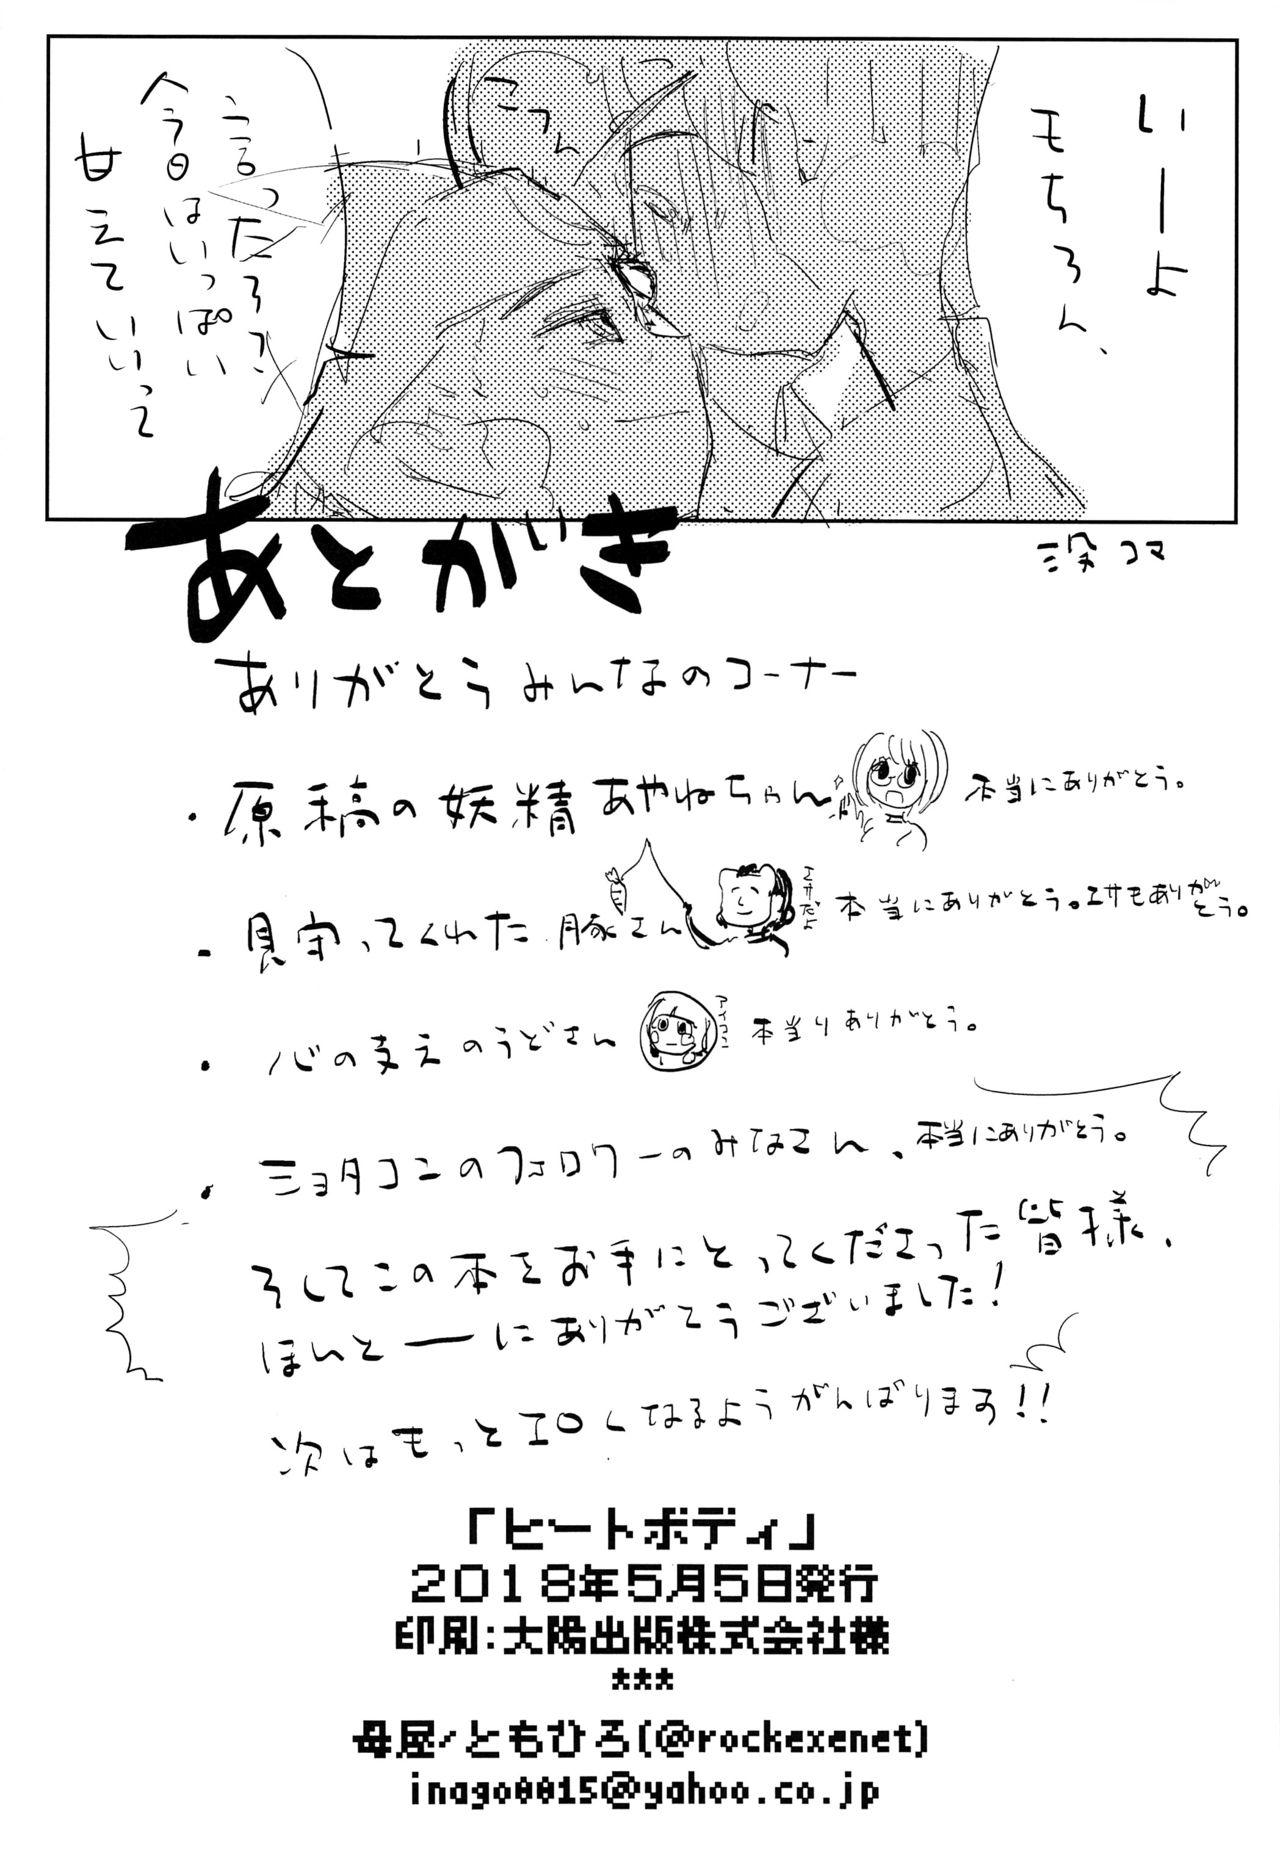 いーよ
もちろん、
こつん
言ったろ?
今日はいっぱい
甘えていいって
没コマ
あとがき
ありがとうみんなのコーナー
・原稿の妖精 あやねちゃん 本当にありがとう。
・見守ってくれた 豚さん エサだよ 本当にありがとう。エサもありがとう。
・心の支えのうどさん アイコン 本当りありがとう。
・ショタコンのフォロワーのみなさん、本当にありがとう。
そしてこの本をお手にとってくださった皆様、
ほんとーにありがとうございました!
次はもっとエロくなるようがんばります!!
「ヒートボディ」
2018年5月5日発行
印刷:大陽出版株式会社様
***
母屋/ともひろ(@rockexenet)
inago0015@yahoo.co.jp